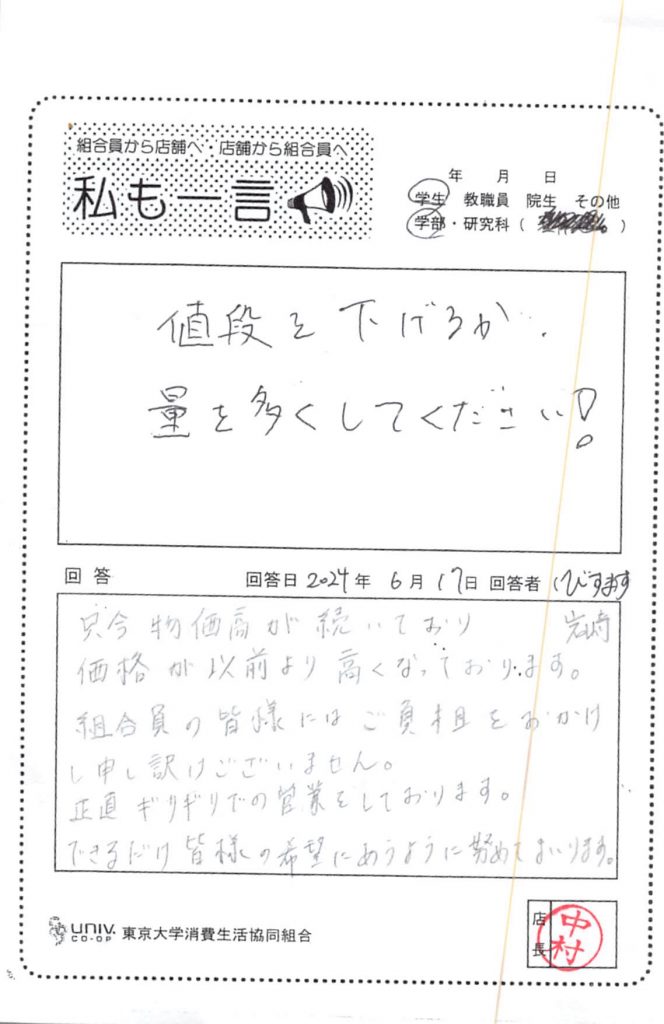 組合員から店舗へ・店舗から組合員へ
私も一言
年 月 日
学生 教職員 院生 その他
学部・研究科( )
値段を下げるか、
量を多くしてください!
回答 回答日 2024年 6月 17日 回答者 びすます
岩崎
只今物価高が続いており
価格が以前より高くなっております。
組合員の皆様にはご負担をおかけ
し申し訳けございません。
正直ギリギリでの営業をしております。
できるだけ皆様の希望にあうように努めてまいります。
UNIV. CO-OP 東京大学消費生活協同組合
店長
中村